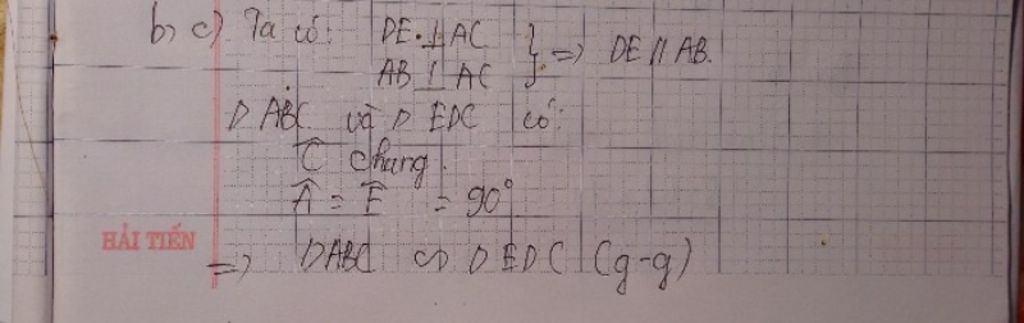 b, c) Ta có: DE ⊥ AC
AB ⊥ AC } => DE // AB.
Δ ABC và Δ EDC có:
Ĉ chung.
Â = Ê = 90°
HẢI TIẾN
=> ΔABC ∽ Δ EDC (g-g)